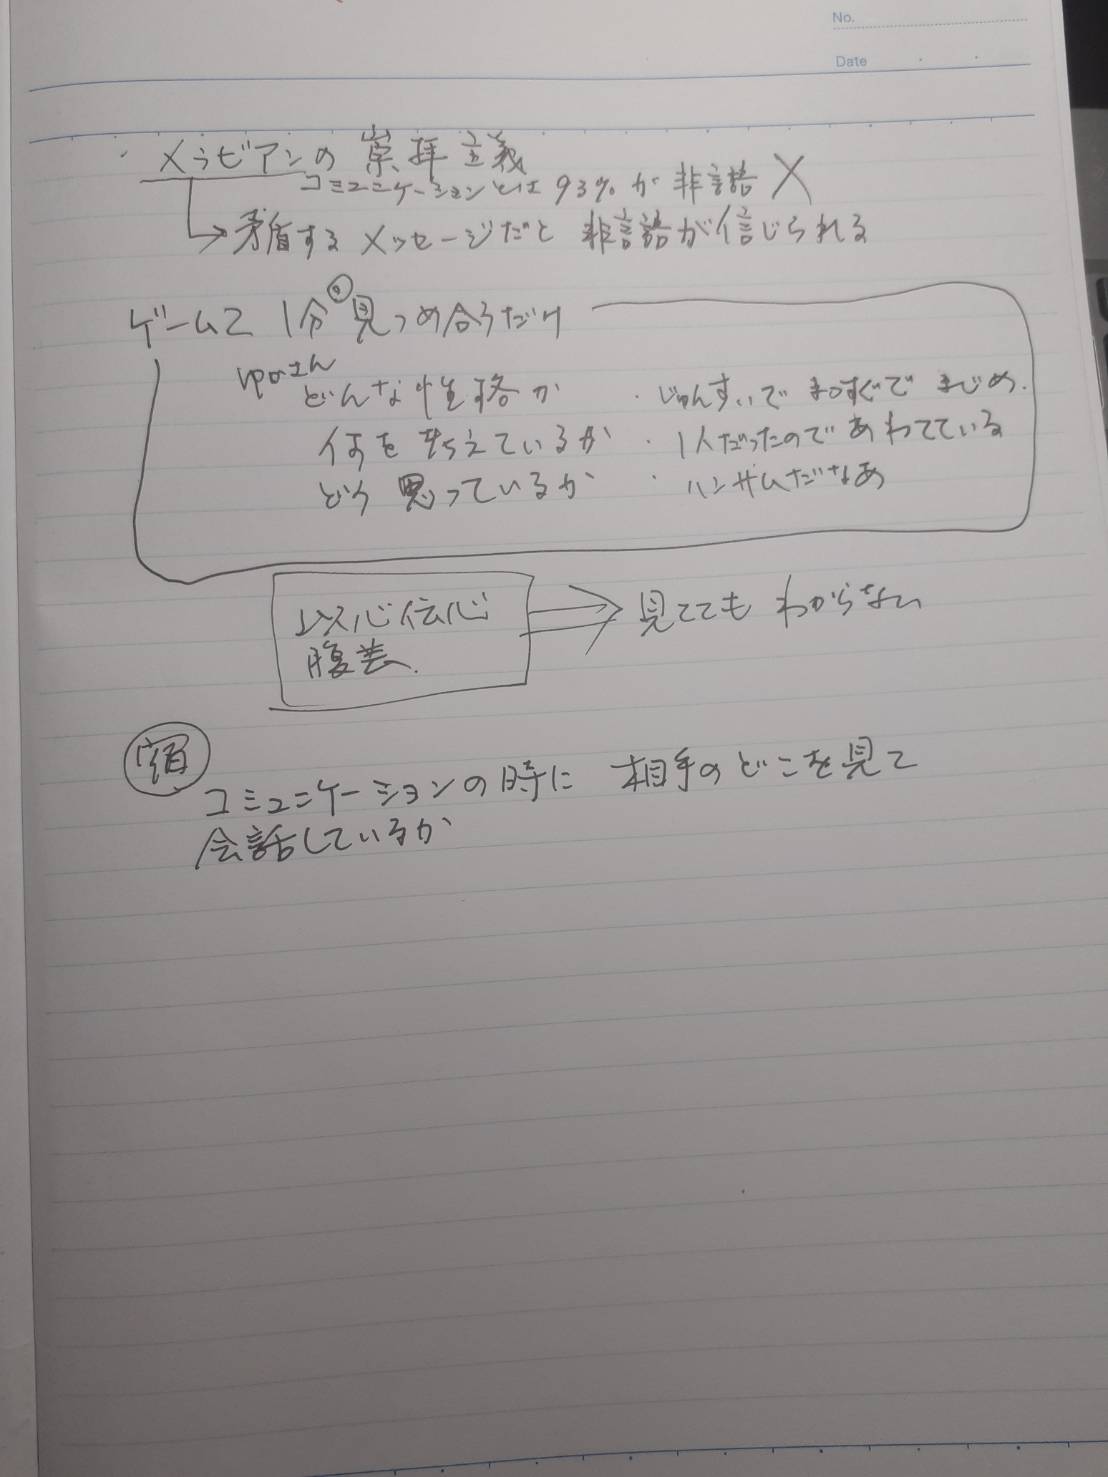 No.
Date
・メラビアンの崇拝主義
コミュニケーションとは93%が非言語 X
→矛盾するメッセージだと 非言語が信じられる
ゲーム2 1分 見つめ合うだけ
ゆoさん
どんな性格か ・じゅんすいで まっすぐで まじめ.
何を考えているか ・1人だったので あわてている
どう思っているか ・ハンサムだなあ
以心伝心
腹芸
⇒ 見てても わからない
コミュニケーションの時に 相手のどこを見て
会話しているか